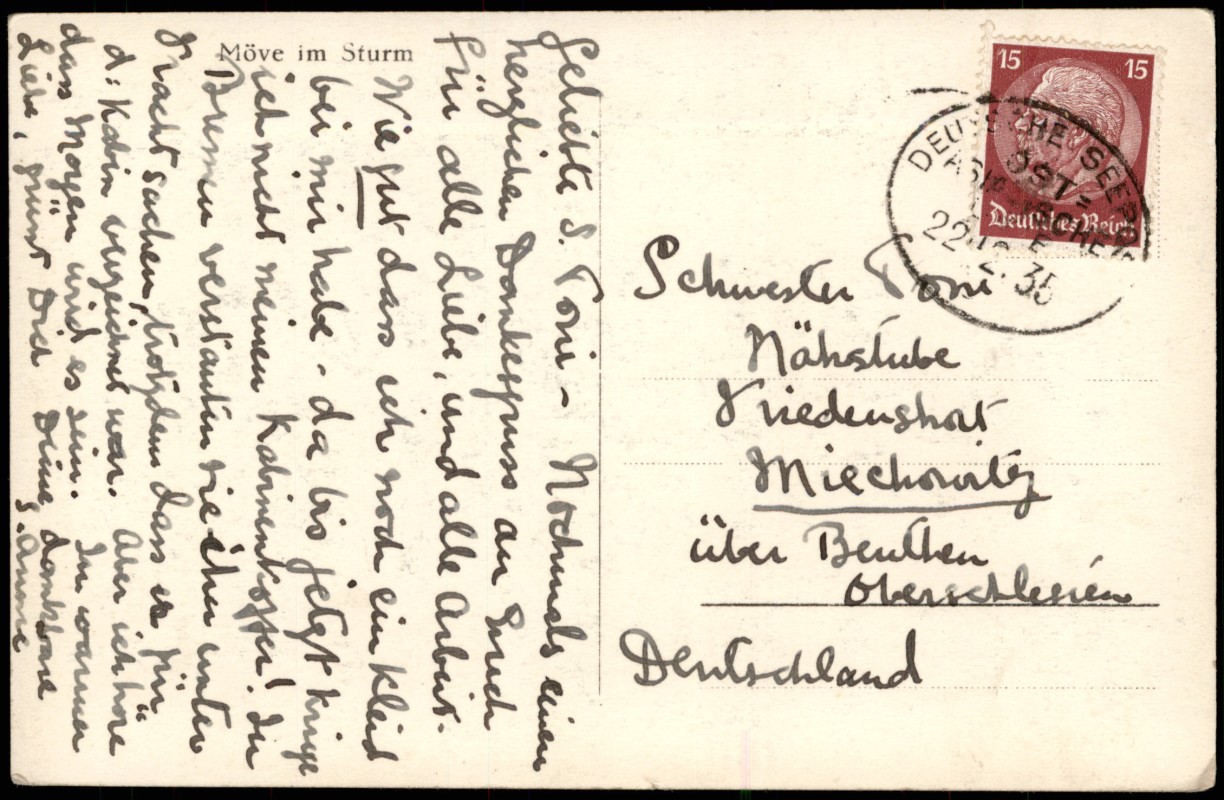 Möve im Sturm
Geliebte S. Toni - Nochmals einen
herzlichen Dankesgruss an Euch
für alle Liebe, und alle Arbeit.
Wie gut dass ich noch ein Kleid
bei mir habe - da bis jetzt kriege
ich nicht meinen Kabinenkoffer! In
Bremen verstauten sie ihn unter
Frachtsachen, trotzdem dass er für
d: Kabin verzeichnet war. Aber ich höre
dass Morgen wird es sein. In warmer
Liebe, grüsst Dich Deine dankbare
S. Annie
15 15
Deutsches Reich
DEUTSCHE SEEPOST
OST
22.12.35
Schwester Toni
Nähstube
Friedenshort
Miechowitz
über Beuthen
Oberschlesien
Deutschland